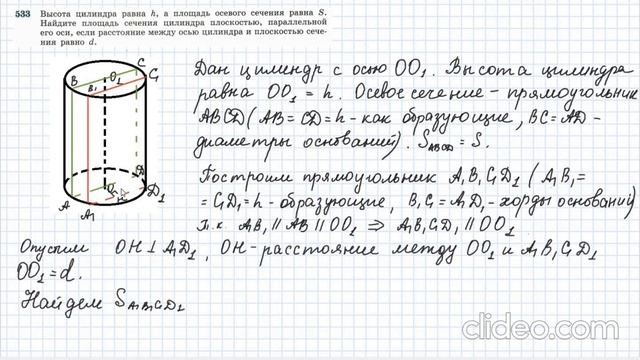 533 Высота цилиндра равна h, а площадь осевого сечения равна S.
Найдите площадь сечения цилиндра плоскостью, параллельной
его оси, если расстояние между осью цилиндра и плоскостью сече-
ния равно d.
Дан цилиндр с осью OO₁. Высота цилиндра
равна OO₁ = h. Осевое сечение - прямоугольник
ABCD (AB = CD = h - как образующие, BC = AD -
диаметры оснований). S ABCD = S.
Построим прямоугольник A₁B₁C₁D₁ (A₁B₁ =
= C₁D₁ = h - образующие, B₁C₁ = A₁D₁ - хорды оснований)
Т.к. A₁B₁ || AB || OO₁ ⇒ A₁B₁C₁D₁ || OO₁
Опустим OH ⊥ A₁D₁, OH - расстояние между OO₁ и A₁B₁C₁D₁
OO₁ = d.
Найдем S A₁B₁C₁D₁
C
B B₁ O₁ C₁
D
A A₁ D₁
clideo.com